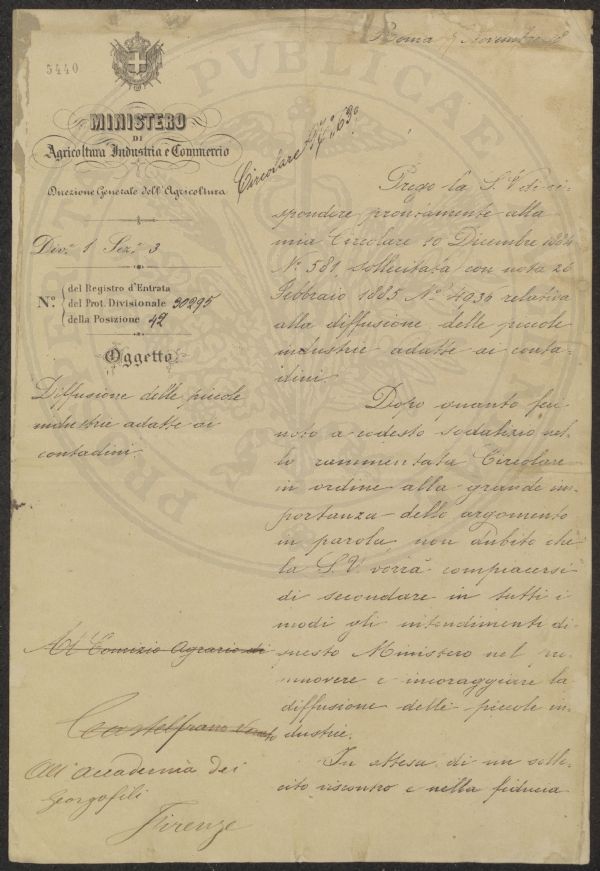 Roma Novembre
5440
MINISTERO
DI
Agricoltura Industria e Commercio
Direzione Generale dell'Agricoltura
Div.e 1 Sez.e 3
N.o del Registro d'Entrata
del Prot. Divisionale 30295
della Posizione 42
Oggetto
Diffusione delle piccole
industrie adatte ai
contadini.
Al Comizio Agrario di
Castelfranco Veneto
All'Accademia dei
Georgofili
Firenze
Circolare N.o 630
Prego la S. V. di ri-
spondere prontamente alla
mia Circolare 10 Dicembre 1884
No 581, sollecitata con nota 26
Febbraio 1885 No 4036 relativa
alla diffusione delle piccole
industrie adatte ai conta-
dini.
Dopo quanto feci
noto a codesto sodalizio nel-
la rammentata Circolare
in ordine alla grande im-
portanza dello argomento
in parola, non dubito che
la S. V. vorrà compiacersi
di secondare in tutti i
modi gli intendimenti di
questo Ministero nel pro-
muovere e incoraggiare la
diffusione delle piccole in-
dustrie.
In attesa di un solle-
cito riscontro e nella fiducia
PUBLICAE